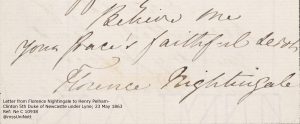 Believe me
your Grace's faithful servt
Florence Nightingale
Letter from Florence Nightingale to Henry Pelham-
Clinton 5th Duke of Newcastle under Lyne; 23 May 1863
Ref: Ne C 10938
@mssUniNott